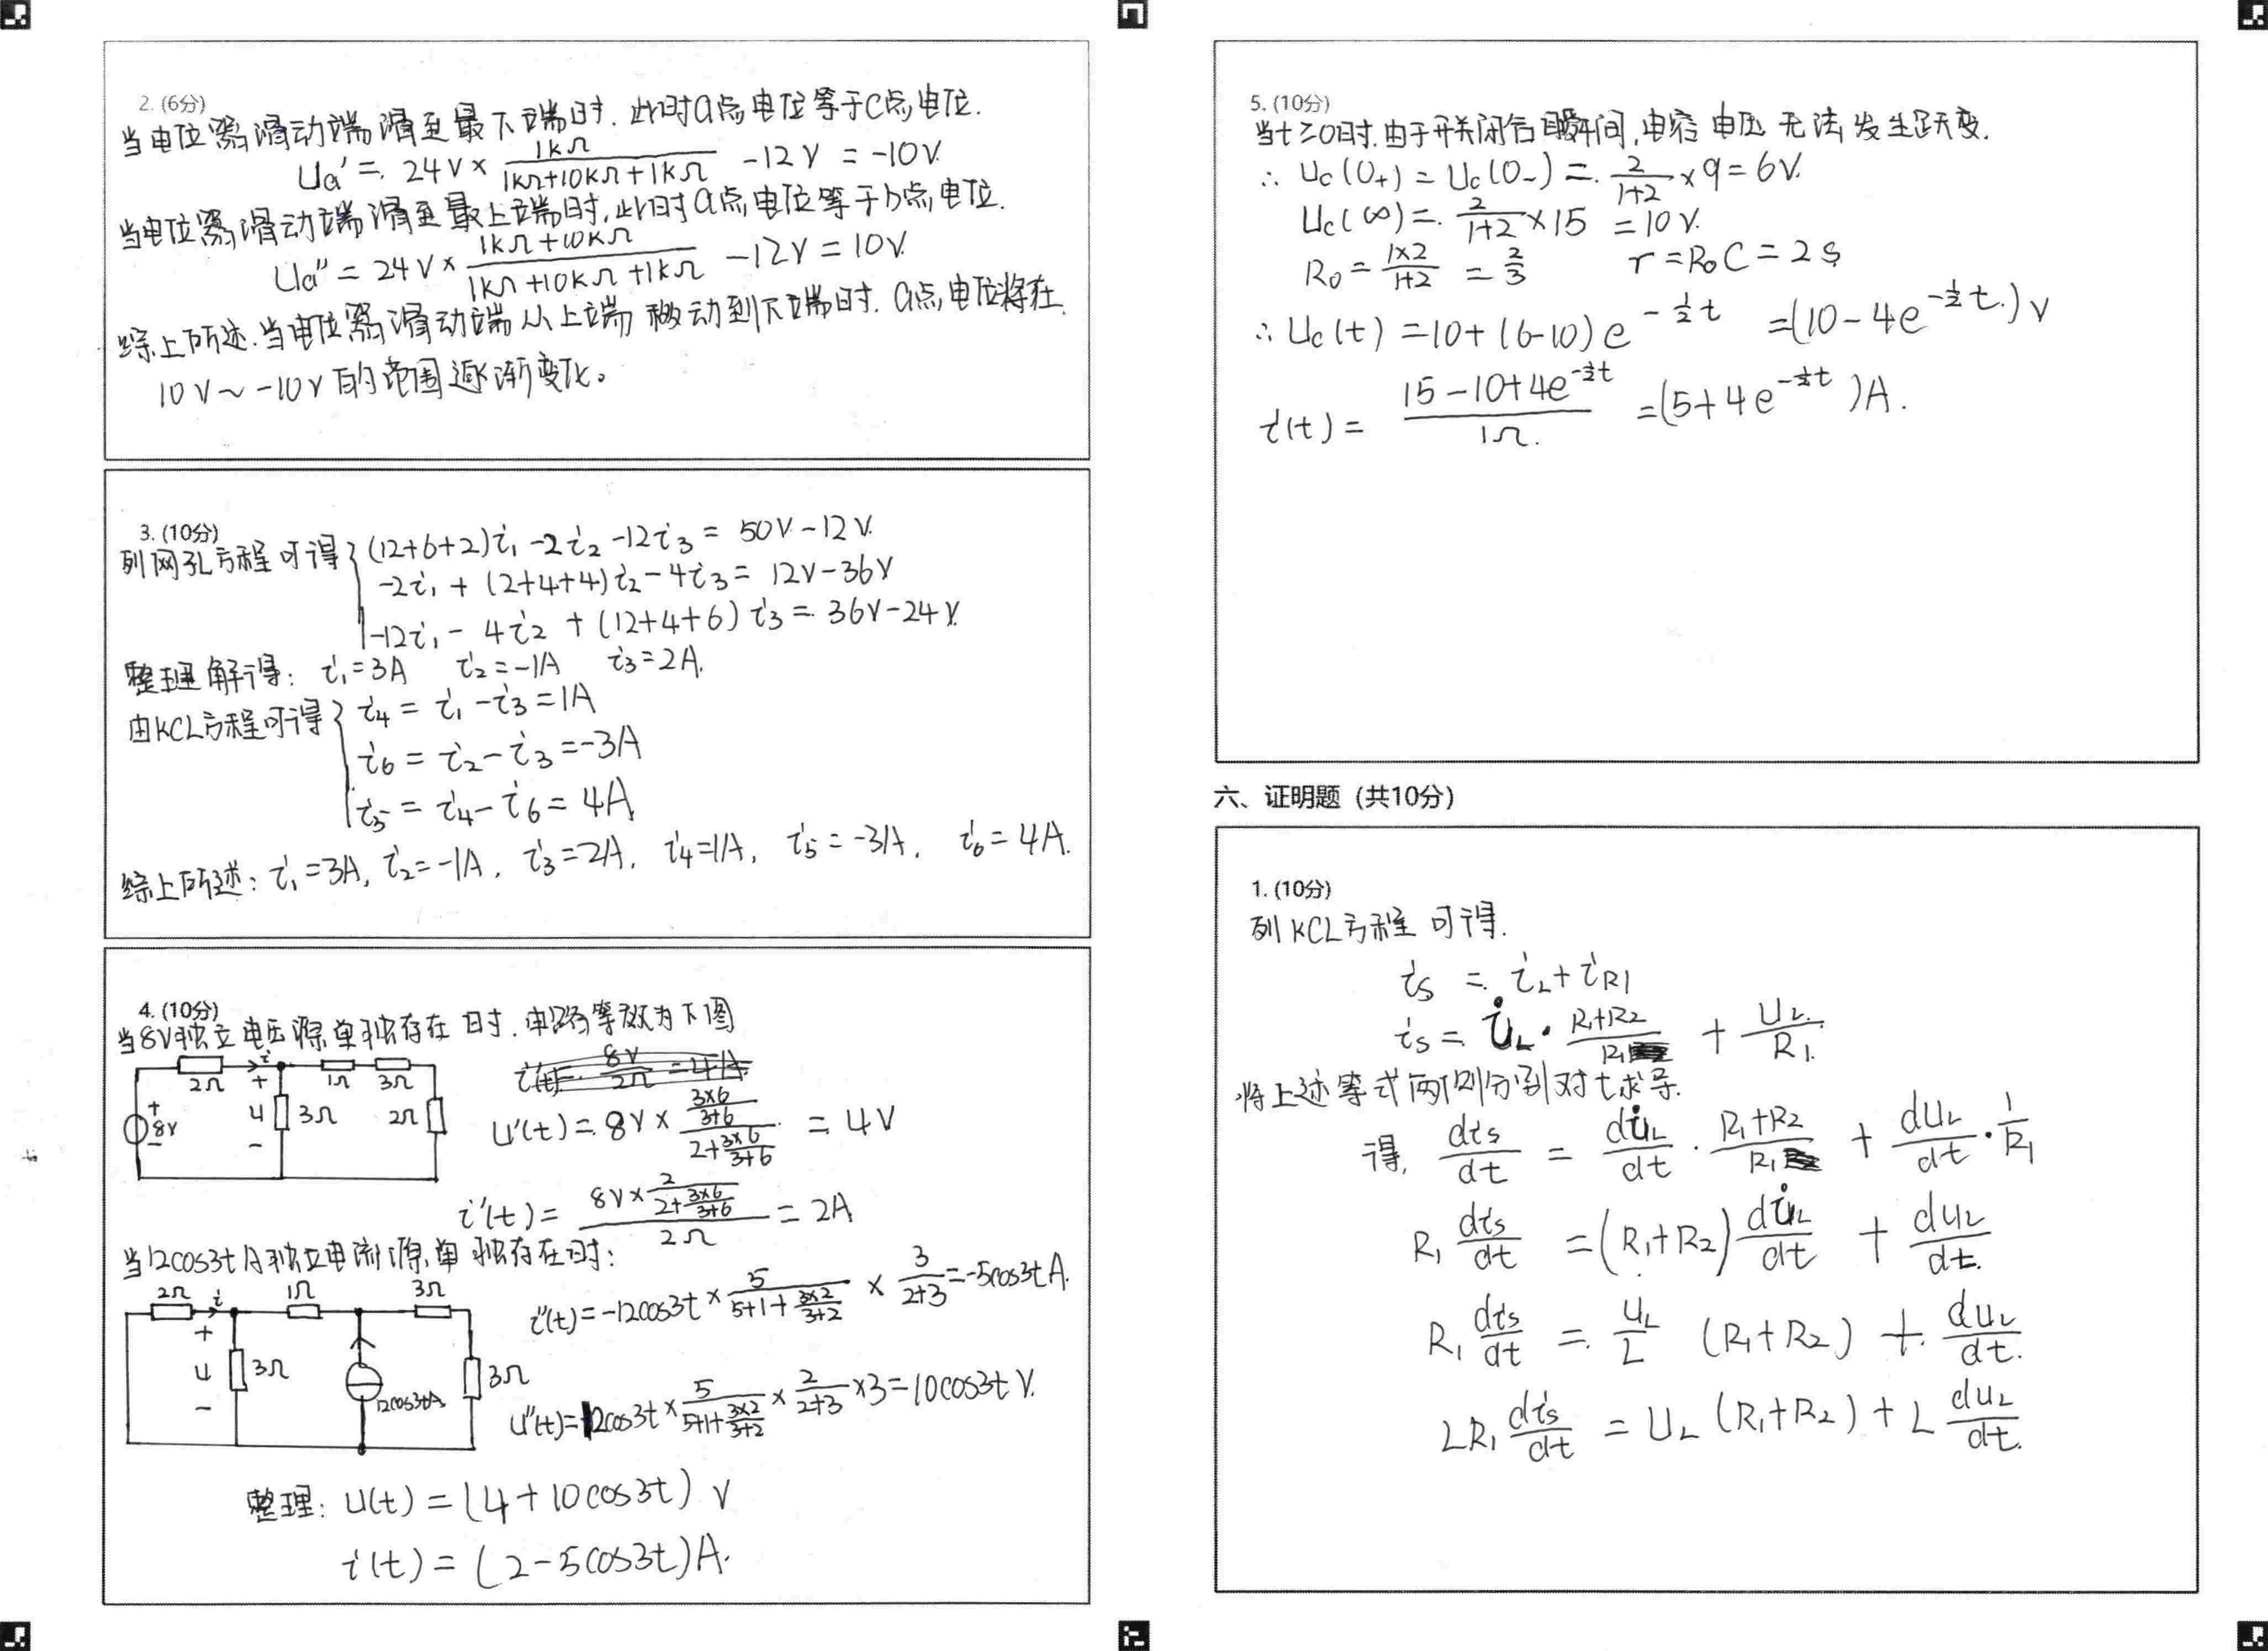 2. (6分)
当电位器滑动端滑至最下端时. 此时a点电位等于c点电位.
Ua' = 24V × 1kΩ/(1kΩ+10kΩ+1kΩ) -12V = -10V.
当电位器滑动端滑至最上端时, 此时a点电位等于b点电位.
Ua'' = 24V × (1kΩ+10kΩ)/(1kΩ+10kΩ+1kΩ) -12V = 10V.
综上所述.当电位器滑动端从上端移动到下端时. a点电位将在
10V ~ -10V的范围逐渐变化。
3. (10分)
列网孔方程可得{ (12+6+2)i₁ -2i₂ -12i₃ = 50V-12V.
-2i₁ + (2+4+4)i₂ -4i₃ = 12V-36V
-12i₁ - 4i₂ + (12+4+6)i₃ = 36V-24V.
整理解得: i₁=3A i₂=-1A i₃=2A.
由KCL方程可得{ i₄ = i₁-i₃ = 1A
i₆ = i₂-i₃ = -3A
i₅ = i₄-i₆ = 4A
综上所述: i₁=3A, i₂=-1A, i₃=2A, i₄=1A, i₅=-3A, i₆=4A.
4. (10分)
当8V独立电压源单独存在时.电路等效为下图
2Ω i 1Ω 3Ω
+ u - 3Ω 2Ω
+ 8V -
u'(t) = 8V × (3×6/(3+6))/(2+3×6/(3+6)) = 4V
i'(t) = (8V × 2/(2+3×6/(3+6)))/2Ω = 2A
当12cos3tA独立电流源单独存在时:
2Ω i 1Ω 3Ω
+ u - 3Ω 12cos3tA 3Ω
i''(t) = -12cos3t × 5/(5+1+3×2/(3+2)) × 3/(2+3) = -5cos3t A.
u''(t) = 12cos3t × 5/(5+1+3×2/(3+2)) × 2/(2+3) ×3 = 10cos3t V.
整理: u(t) = (4+10cos3t) V
i(t) = (2-5cos3t)A.
5. (10分)
当t≥0时.由于开关闭合瞬间,电容电压无法发生跃变.
∴ Uc(0₊) = Uc(0₋) = 2/(1+2) ×9 = 6V.
Uc(∞) = 2/(1+2) ×15 = 10V.
R₀ = 1×2/(1+2) = 2/3 τ = R₀C = 2s
∴ Uc(t) = 10+(6-10)e^(-½t) = (10-4e^(-½t)) V
i(t) = (15-10+4e^(-½t))/1Ω. = (5+4e^(-½t))A.
六、证明题 (共10分)
1. (10分)
列KCL方程可得.
iₛ = i_L + i_R1
iₛ = i_L · (R₁+R₂)/R₁ + U_L/R₁
将上述等式两侧分别对t求导.
得, diₛ/dt = di_L/dt · (R₁+R₂)/R₁ + du_L/dt · 1/R₁
R₁ diₛ/dt = (R₁+R₂) di_L/dt + du_L/dt.
R₁ diₛ/dt = u_L/L (R₁+R₂) + du_L/dt.
LR₁ diₛ/dt = U_L (R₁+R₂) + L du_L/dt.